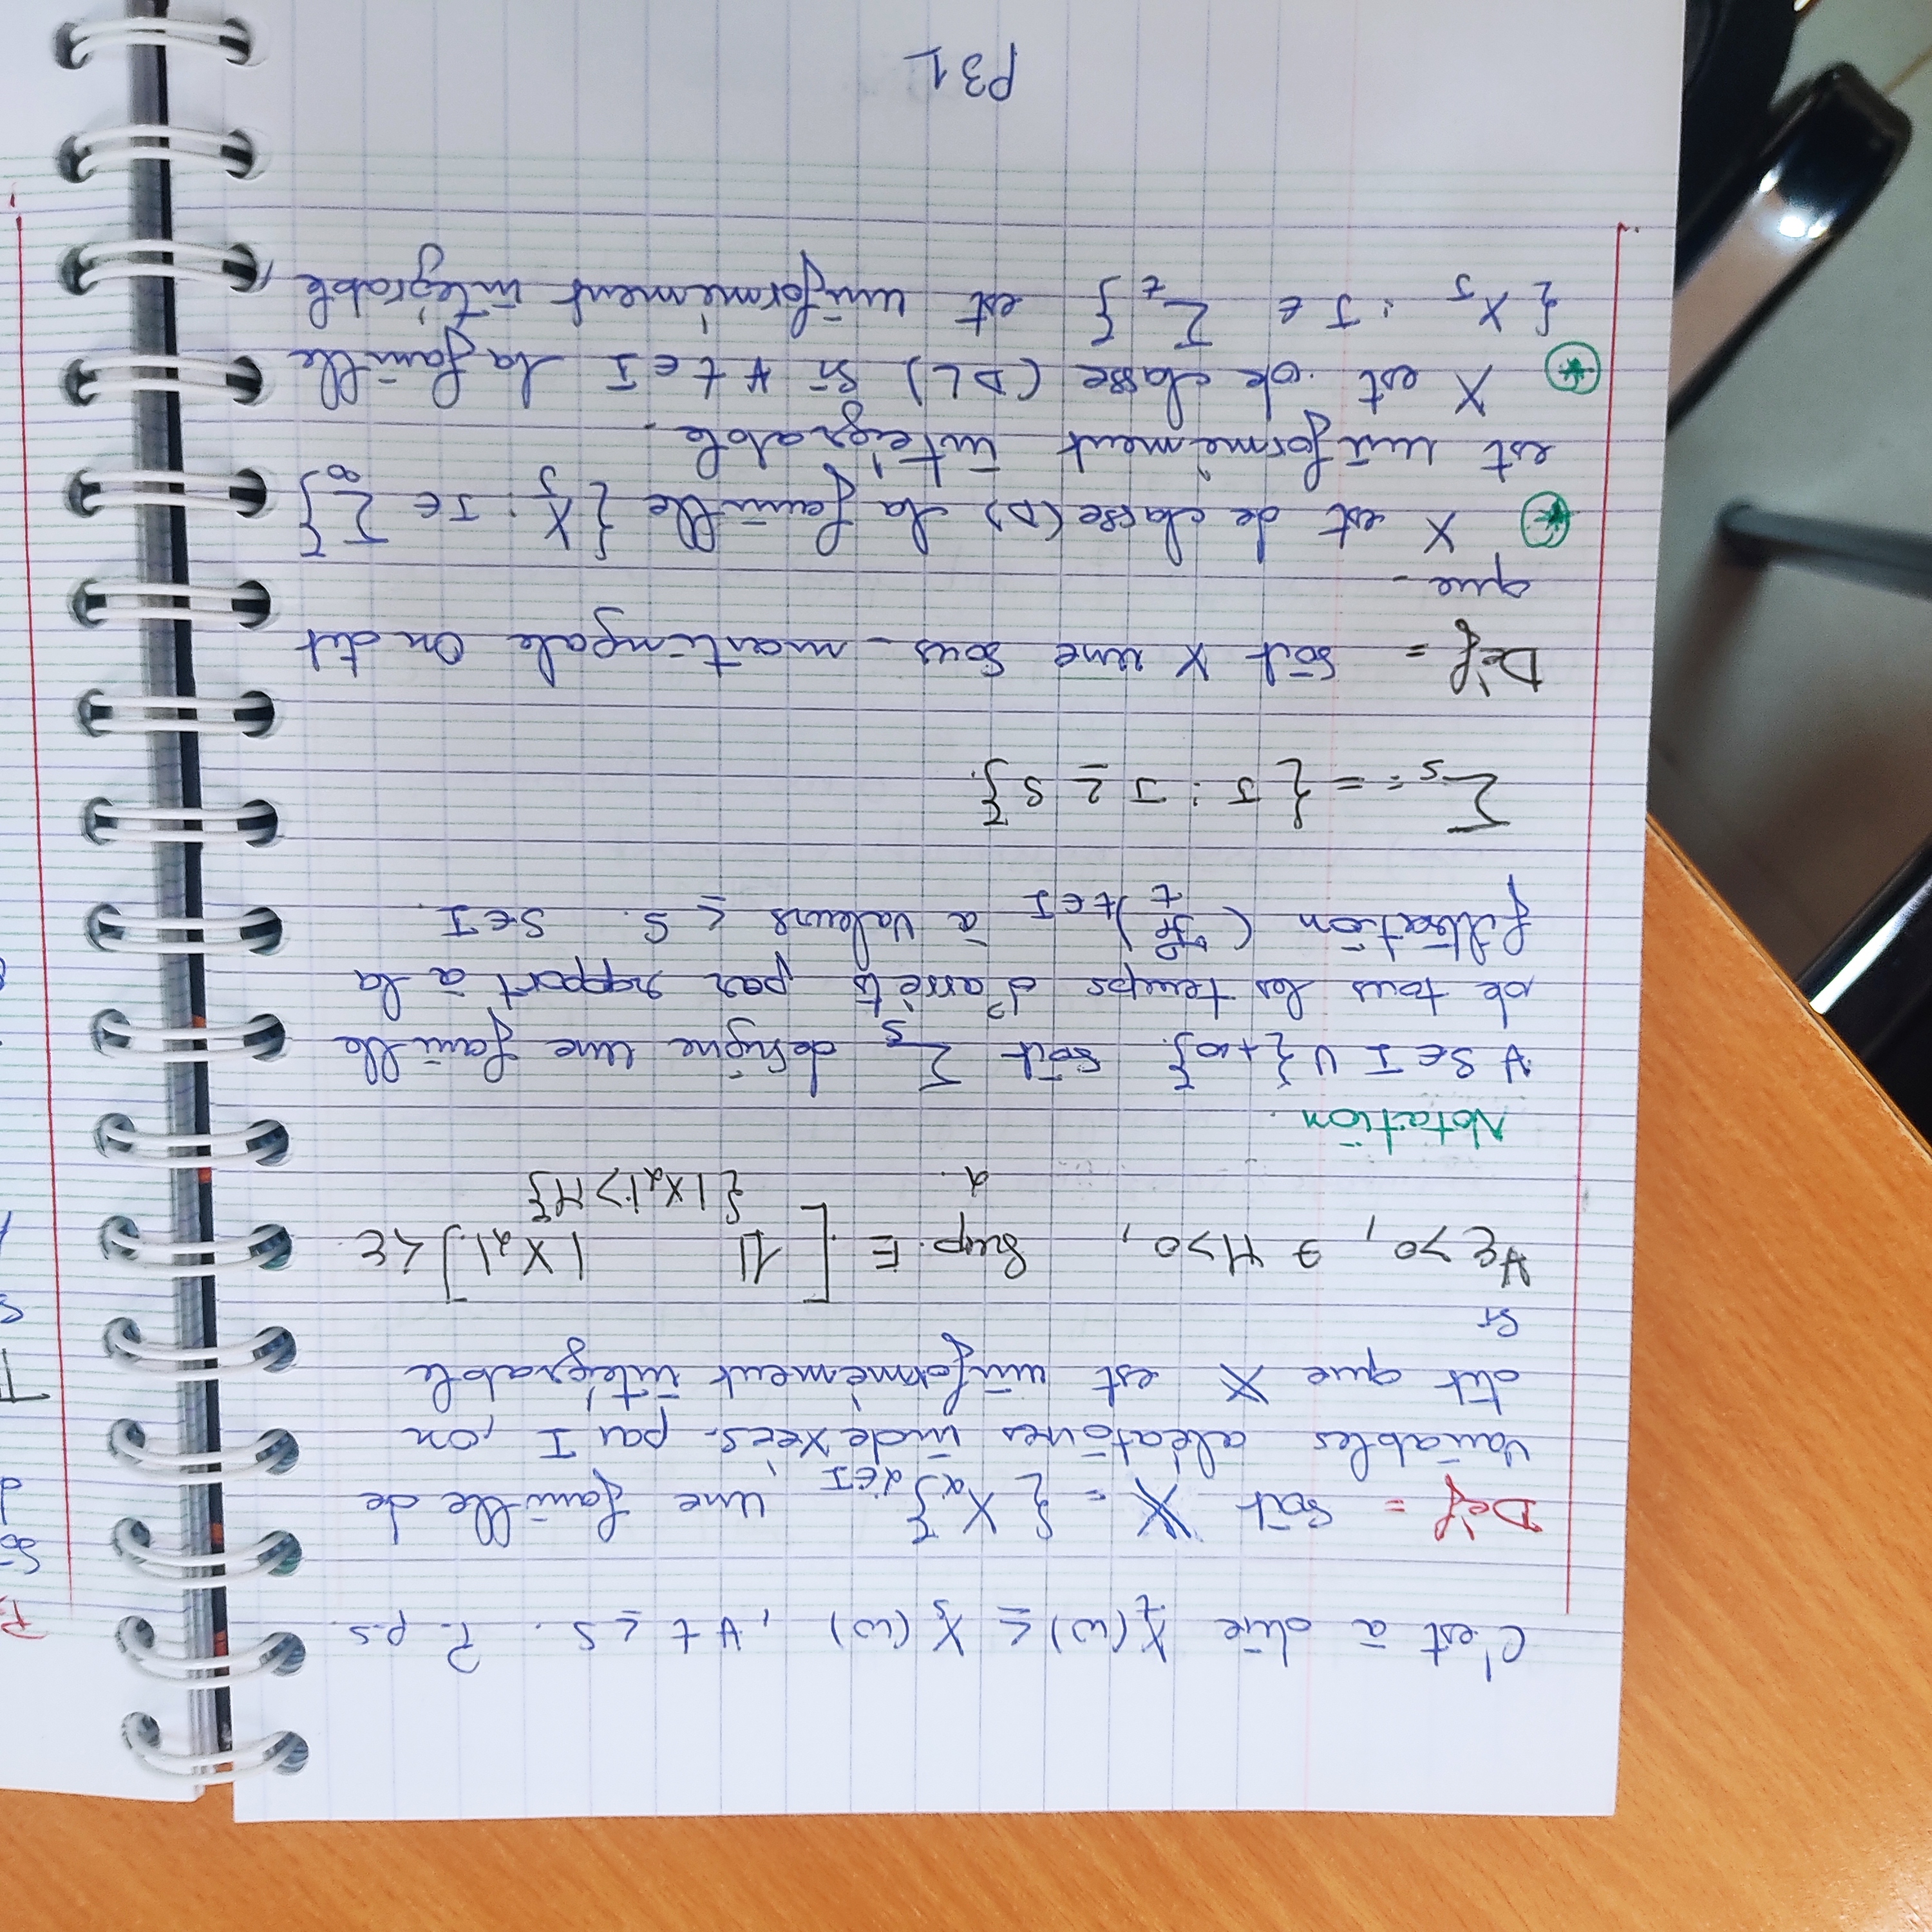 C'est à dire X_t(ω) ≤ X_s(ω) , ∀ t ≤ s. P. p.s.
Déf = soit 𝕏 = { X_α }_{α∈I} une famille de
variables aléatoires indexées par I, on
dit que 𝕏 est uniformément intégrable
si
∀ε>0, ∃ M>0, Sup_α E [ 𝟙_{|X_α|>M} |X_α| ] < ε
Notation.
∀ s∈ I ∪ {+∞}. soit Σ_s designe une famille
de tous les temps d'arrêts par rapport à la
filtration (ℱ_t)_{t∈I} à valeurs ≤ s. s∈I.
Σ_s := { J : J ≥ s }.
Déf = soit X une sous-martingale On dit
que -
* X est de classe (D) la famille { X_J : J ∈ Σ_∞ }
est uniformément intégrable.
* X est de classe (DL) si ∀ t ∈ I la famille
{ X_J : J ∈ Σ_t } est uniformément intégrable,
P31